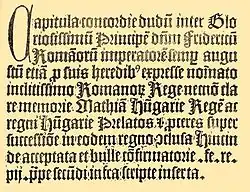 Capitula concordie dudũ inter Glo
riosissimũ Principẽ dñm Fridericũ
Romãorũ imperatorẽ semꝑ augu
stũ etiã ꝓ suis heredibꝰ expresse noĩato
inclitissimo Romanoꝝ Rege necnõ cla
re memorie. Mathiã Hũgarie Regẽ ac
regni Hũgarie Prelatos. ⁊ pteres super
successiõe in eodem regno ⁊ clusa Hincin
de acceptata et bulle cõfirmatorie. fe. re.
pij. ꝓpe secũdi infra scripte inserta.